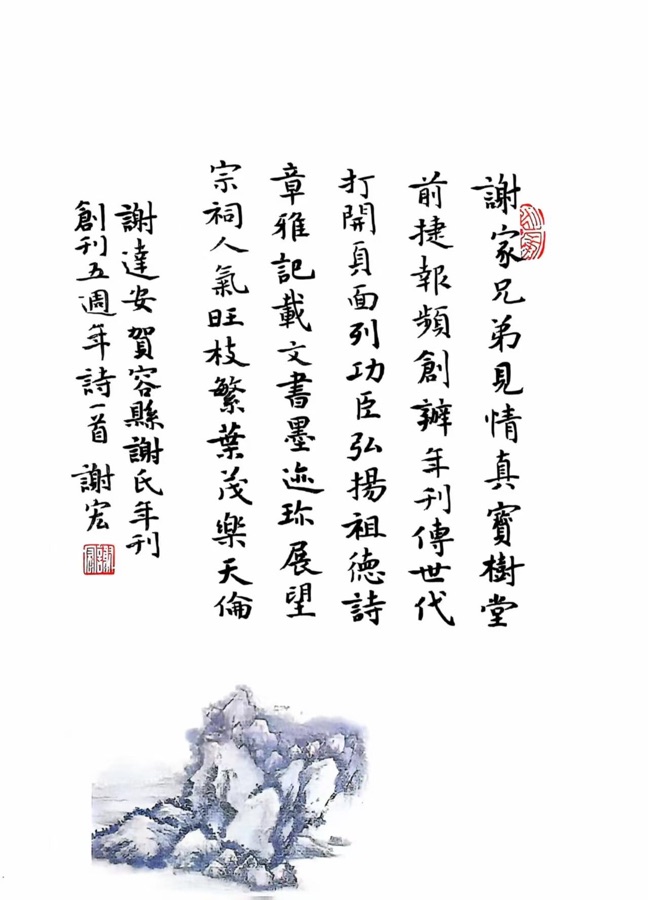 謝家兄弟見情真寶樹堂
前捷報頻創辦年刊傳世代
打開頁面列功臣弘揚祖德詩
章雅記載文書墨迹珎展望
宗祠人氣旺枝繁葉茂樂天倫
謝達安賀容縣謝氏年刊
創刊五週年詩一首 謝宏